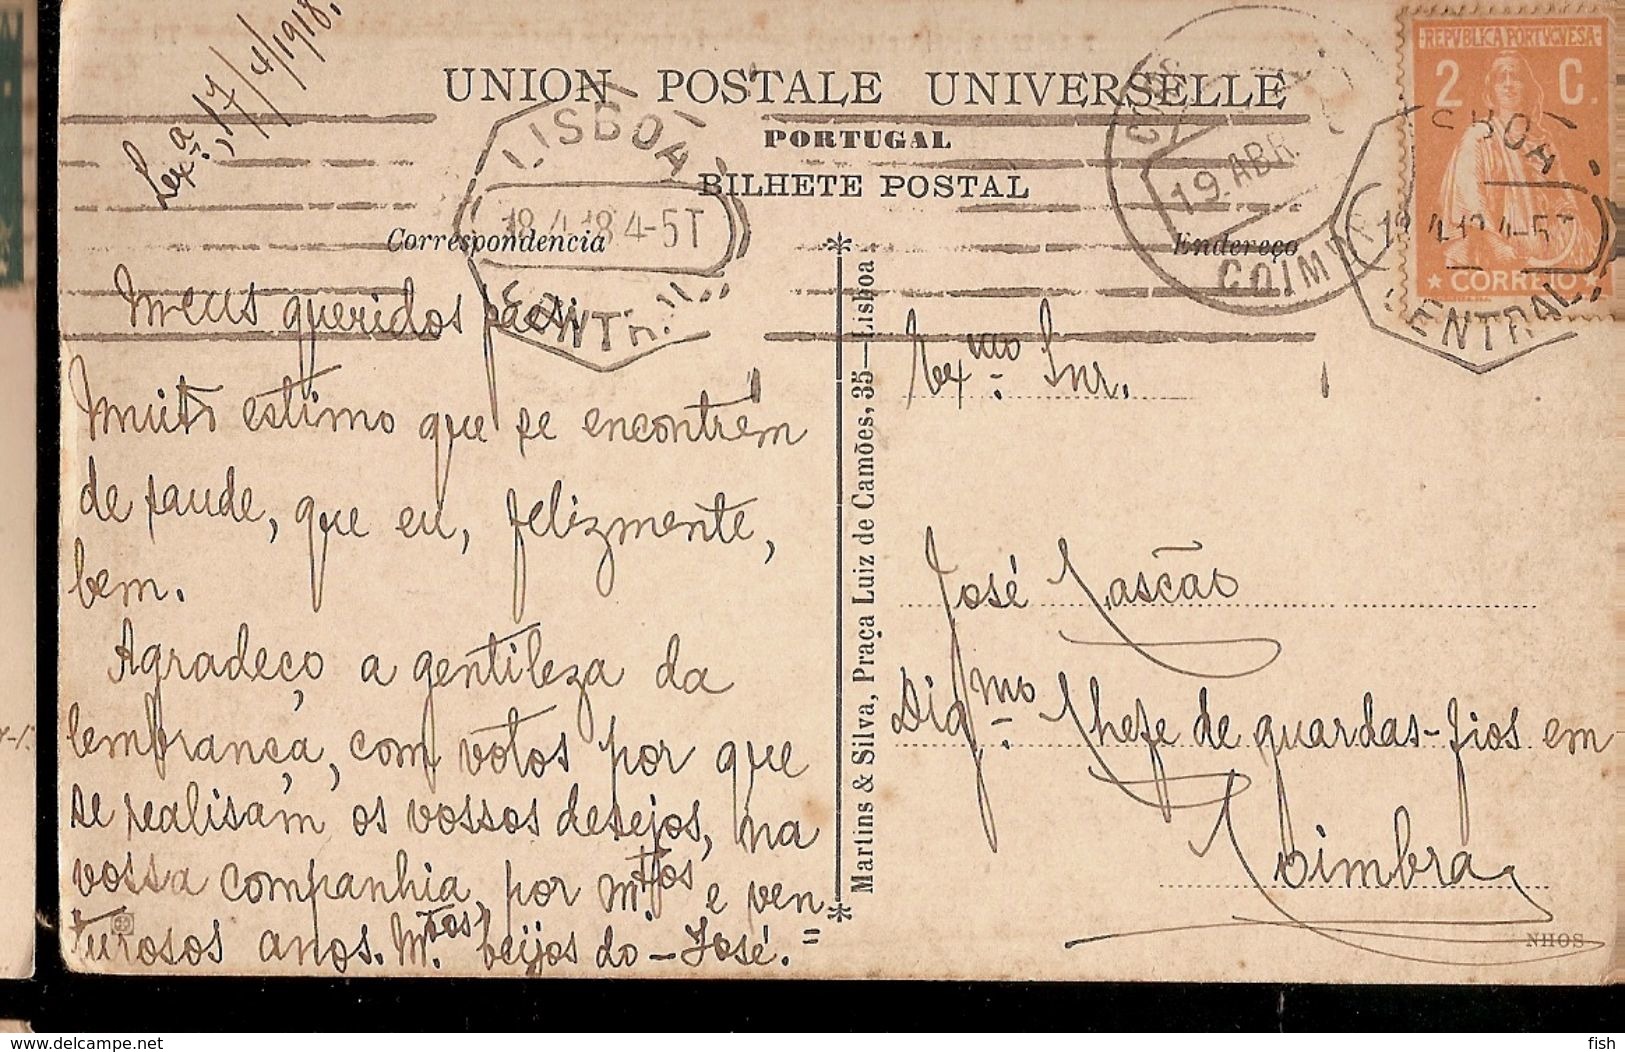 Lx.ª, 17/4/1918.
UNION POSTALE UNIVERSELLE
PORTUGAL
BILHETE POSTAL
Correspondencia
Endereço
LISBOA
18.4.18 4-5T
CENTRAL
19 ABR
COIMBRA
REPVBLICA PORTVGVESA
2 C.
CORREIO
LISBOA
4-5T
CENTRAL
Meus queridos paes:
Muito estimo que se encontrem
de saude, que eu, felizmente,
bem.
Agradeço a gentileza da
lembrança, com votos por que
se realisam os vossos desejos, na
vossa companhia, por m.tos e ven
turosos anos. M.tos beijos do - José. =
Martins & Silva, Praça Luiz de Camões, 35—Lisboa
Ex.mo Snr.
José Cascão
Dig.mo Chefe de guardas-fios em
Coimbra
NHOS
https://www.delcampe.net
fish